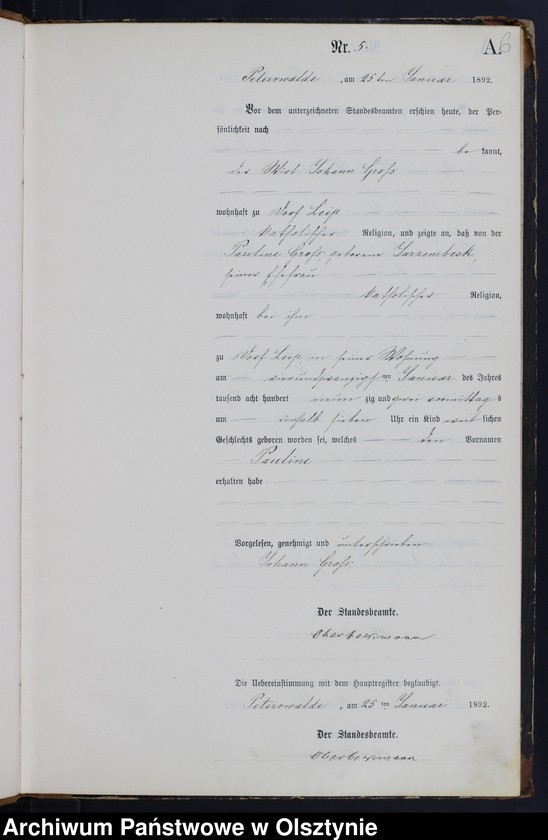 Nr. 5.
A.
6
Peterswalde, am 25ten Januar 1892.
Vor dem unterzeichneten Standesbeamten erschien heute, der Per-
sönlichkeit nach
be kannt,
der Wirt Johann Groß
wohnhaft zu Dorf Leip
katholischer Religion, und zeigte an, daß von der
Pauline Groß, geborene Jarzembeck,
seiner Ehefrau
katholischer Religion,
wohnhaft bei ihm
zu Dorf Leip in seiner Wohnung
am vierundzwanzigsten Januar des Jahres
tausend acht hundert neun zig und zwei vormittag s
um einhalb sieben Uhr ein Kind weib lichen
Geschlechts geboren worden sei, welches den Vornamen
Pauline
erhalten habe
Vorgelesen, genehmigt und unterschrieben
Johann Groß.
Der Standesbeamte.
Die Uebereinstimmung mit dem Hauptregister beglaubigt.
Peterswalde, am 25ten Januar 1892.
Der Standesbeamte.
Archiwum Państwowe w Olsztynie